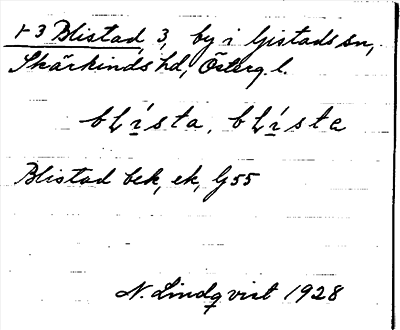 1-3 Blistad, 3, by i Gistads sn,
Skärkinds hd, Österg. l.
blísta, blísta
Blistad bek, ek, G 55
N. Lindqvist 1928